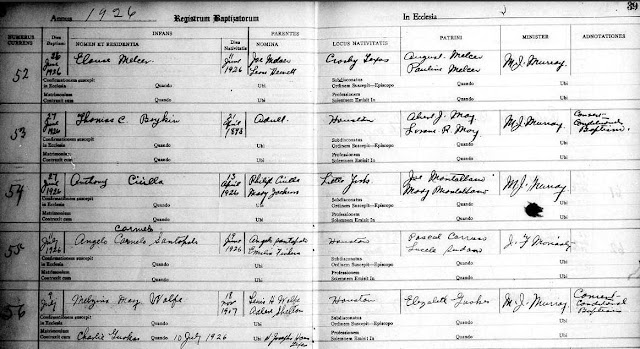 39
Annus 1926 Registrum Baptizatorum In Ecclesia
NUMERUS CURRENS Dies Baptism INFANS Dies Nativitatis PARENTES LOCUS NATIVITATIS PATRINI MINISTER ADNOTATIONES
NOMEN ET RESIDENTIA NOMINA
52 26 June 1926 Elouise Melcer 11 June 1926 Joe Melcer Crosby Texas August Melcer M.J. Murray
Pauline Melcer
Confirmationem suscepit in Ecclesia Quando Ubi Subdiaconatus Ordinem Suscepit—Episcopo Quando Ubi
Matrimonium Contraxit cum Quando Ubi Professionem Solemnem Emisit In Quando Ubi
53 27 June 1926 Thomas C. Boykin 21 April Adult. Houston Abert J. May M.J. Murray Convert-Conditional Baptism.
R. May
Confirmationem suscepit in Ecclesia Quando Ubi Subdiaconatus Ordinem Suscepit—Episcopo Quando Ubi
Matrimonium Contraxit cum Quando Ubi Professionem Solemnem Emisit In Quando Ubi
54 27 June 1926 Anthony Cirilla 13 April 1926 Philip Cirilla Joe Montalbano M.J. Murray
Mary Mary Montalbano
Confirmationem suscepit in Ecclesia Quando Ubi Subdiaconatus Ordinem Suscepit—Episcopo Quando Ubi
Matrimonium Contraxit cum Quando Ubi Professionem Solemnem Emisit In Quando Ubi
Carmelo
55 July 1926 Angelo Carmelo Santopolo 1926 Angelo Houston Pascal Caruso J. F.
Emilia Lucille
Confirmationem suscepit in Ecclesia Quando Ubi Subdiaconatus Ordinem Suscepit—Episcopo Quando Ubi
Matrimonium Contraxit cum Quando Ubi Professionem Solemnem Emisit In Quando Ubi
56 July May Wolfe 18 Nov 1907 Louis H. Wolfe Houston Elizabeth M.J. Murray Convert-Conditional Baptism
Shelton
Confirmationem suscepit in Ecclesia Quando Ubi Subdiaconatus Ordinem Suscepit—Episcopo Quando Ubi
Matrimonium Contraxit cum Charlie Quando 10 July 1926 Ubi St Josephs Professionem Solemnem Emisit In Quando Ubi